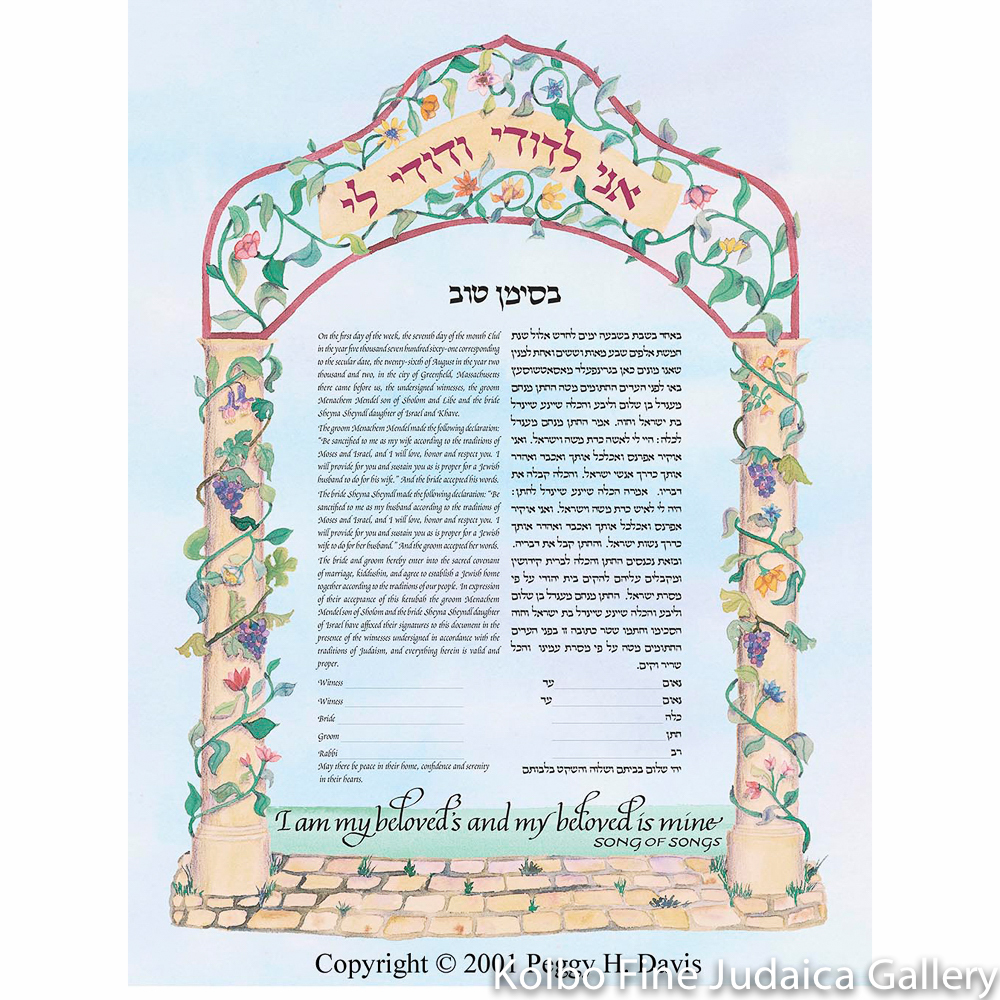 אני לדודי ודודי לי
בסימן טוב
On the first day of the week, the seventh day of the month Elul
in the year five thousand seven hundred sixty-one corresponding
to the secular date, the twenty-sixth of August in the year two
thousand and two, in the city of Greenfield, Massachusetts
there came before us, the undersigned witnesses, the groom
Menachem Mendel son of Sholom and Libe and the bride
Sheyna Sheyndl daughter of Israel and Khave.
The groom Menachem Mendel made the following declaration:
"Be sanctified to me as my wife according to the traditions of
Moses and Israel, and I will love, honor and respect you. I
will provide for you and sustain you as is proper for a Jewish
husband to do for his wife." And the bride accepted his words.
The bride Sheyna Sheyndl made the following declaration: "Be
sanctified to me as my husband according to the traditions of
Moses and Israel, and I will love, honor and respect you. I
will provide for you and sustain you as is proper for a Jewish
wife to do for her husband." And the groom accepted her words.
The bride and groom hereby enter into the sacred covenant
of marriage, kiddushin, and agree to establish a Jewish home
together according to the traditions of our people. In expression
of their acceptance of this ketubah the groom Menachem
Mendel son of Sholom and the bride Sheyna Sheyndl daughter
of Israel have affixed their signatures to this document in the
presence of the witnesses undersigned in accordance with the
traditions of Judaism, and everything herein is valid and
proper.
Witness
Witness
Bride
Groom
Rabbi
May there be peace in their home, confidence and serenity
in their hearts.
באחד בשבת בשבעה ימים לחדש אלול שנת
חמשת אלפים שבע מאות וששים ואחת למנין
שאנו מונים כאן בגרינפעלד מאסאטשוסעץ
באו לפני העדים החתומים מטה החתן מנחם
מענדל בן שלום וליבע והכלה שיינע שיינדל
בת ישראל וחוה. אמר החתן מנחם מענדל
לכלה: היי לי לאשה כדת משה וישראל. ואני
אוקיר אפרנס ואכלכל אותך ואכבד ואהדר
אותך כדרך אנשי ישראל. והכלה קבלה את
דבריו. אמרה הכלה שיינע שיינדל לחתן:
היה לי לאיש כדת משה וישראל. ואני אוקיר
אפרנס ואכלכל אותך ואכבד ואהדר אותך
כדרך נשות ישראל. והחתן קבל את דבריה.
ובזאת נכנסים החתן והכלה לברית קידושין
ומקבלים עליהם להקים בית יהודי על פי
מסרת ישראל. החתן מנחם מענדל בן שלום
וליבע והכלה שיינע שיינדל בת ישראל וחוה
הסכימו וחתמו שטר כתובה זו בפני העדים
החתומים מטה על פי מסרת עמינו והכל
שריר וקים.
נאום עד
נאום עד
כלה
חתן
רב
יהי שלום בביתם ושלוה והשקט בלבותם
I am my beloved's and my beloved is mine
SONG OF SONGS
Copyright © 2001 Peggy H. Davis
Kolbo Fine Judaica Gallery